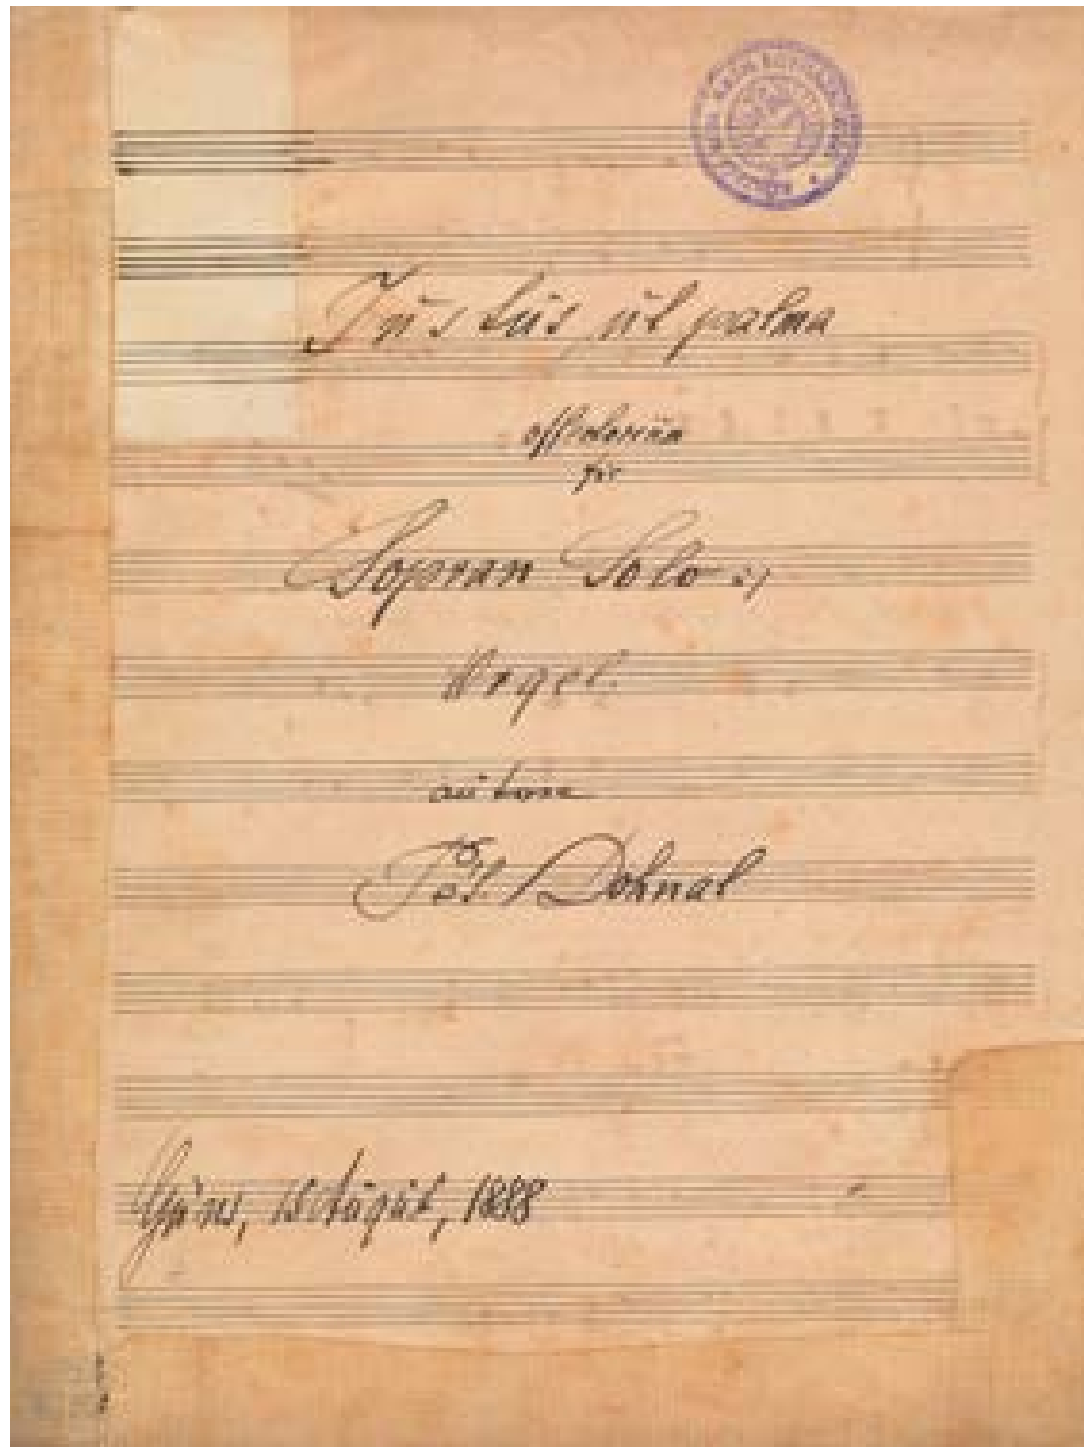 Justus ut palma
offertorium
für
Sopran Solo
Orgel.
autore
Jos. Dohnal
Güns, 15 August, 1888